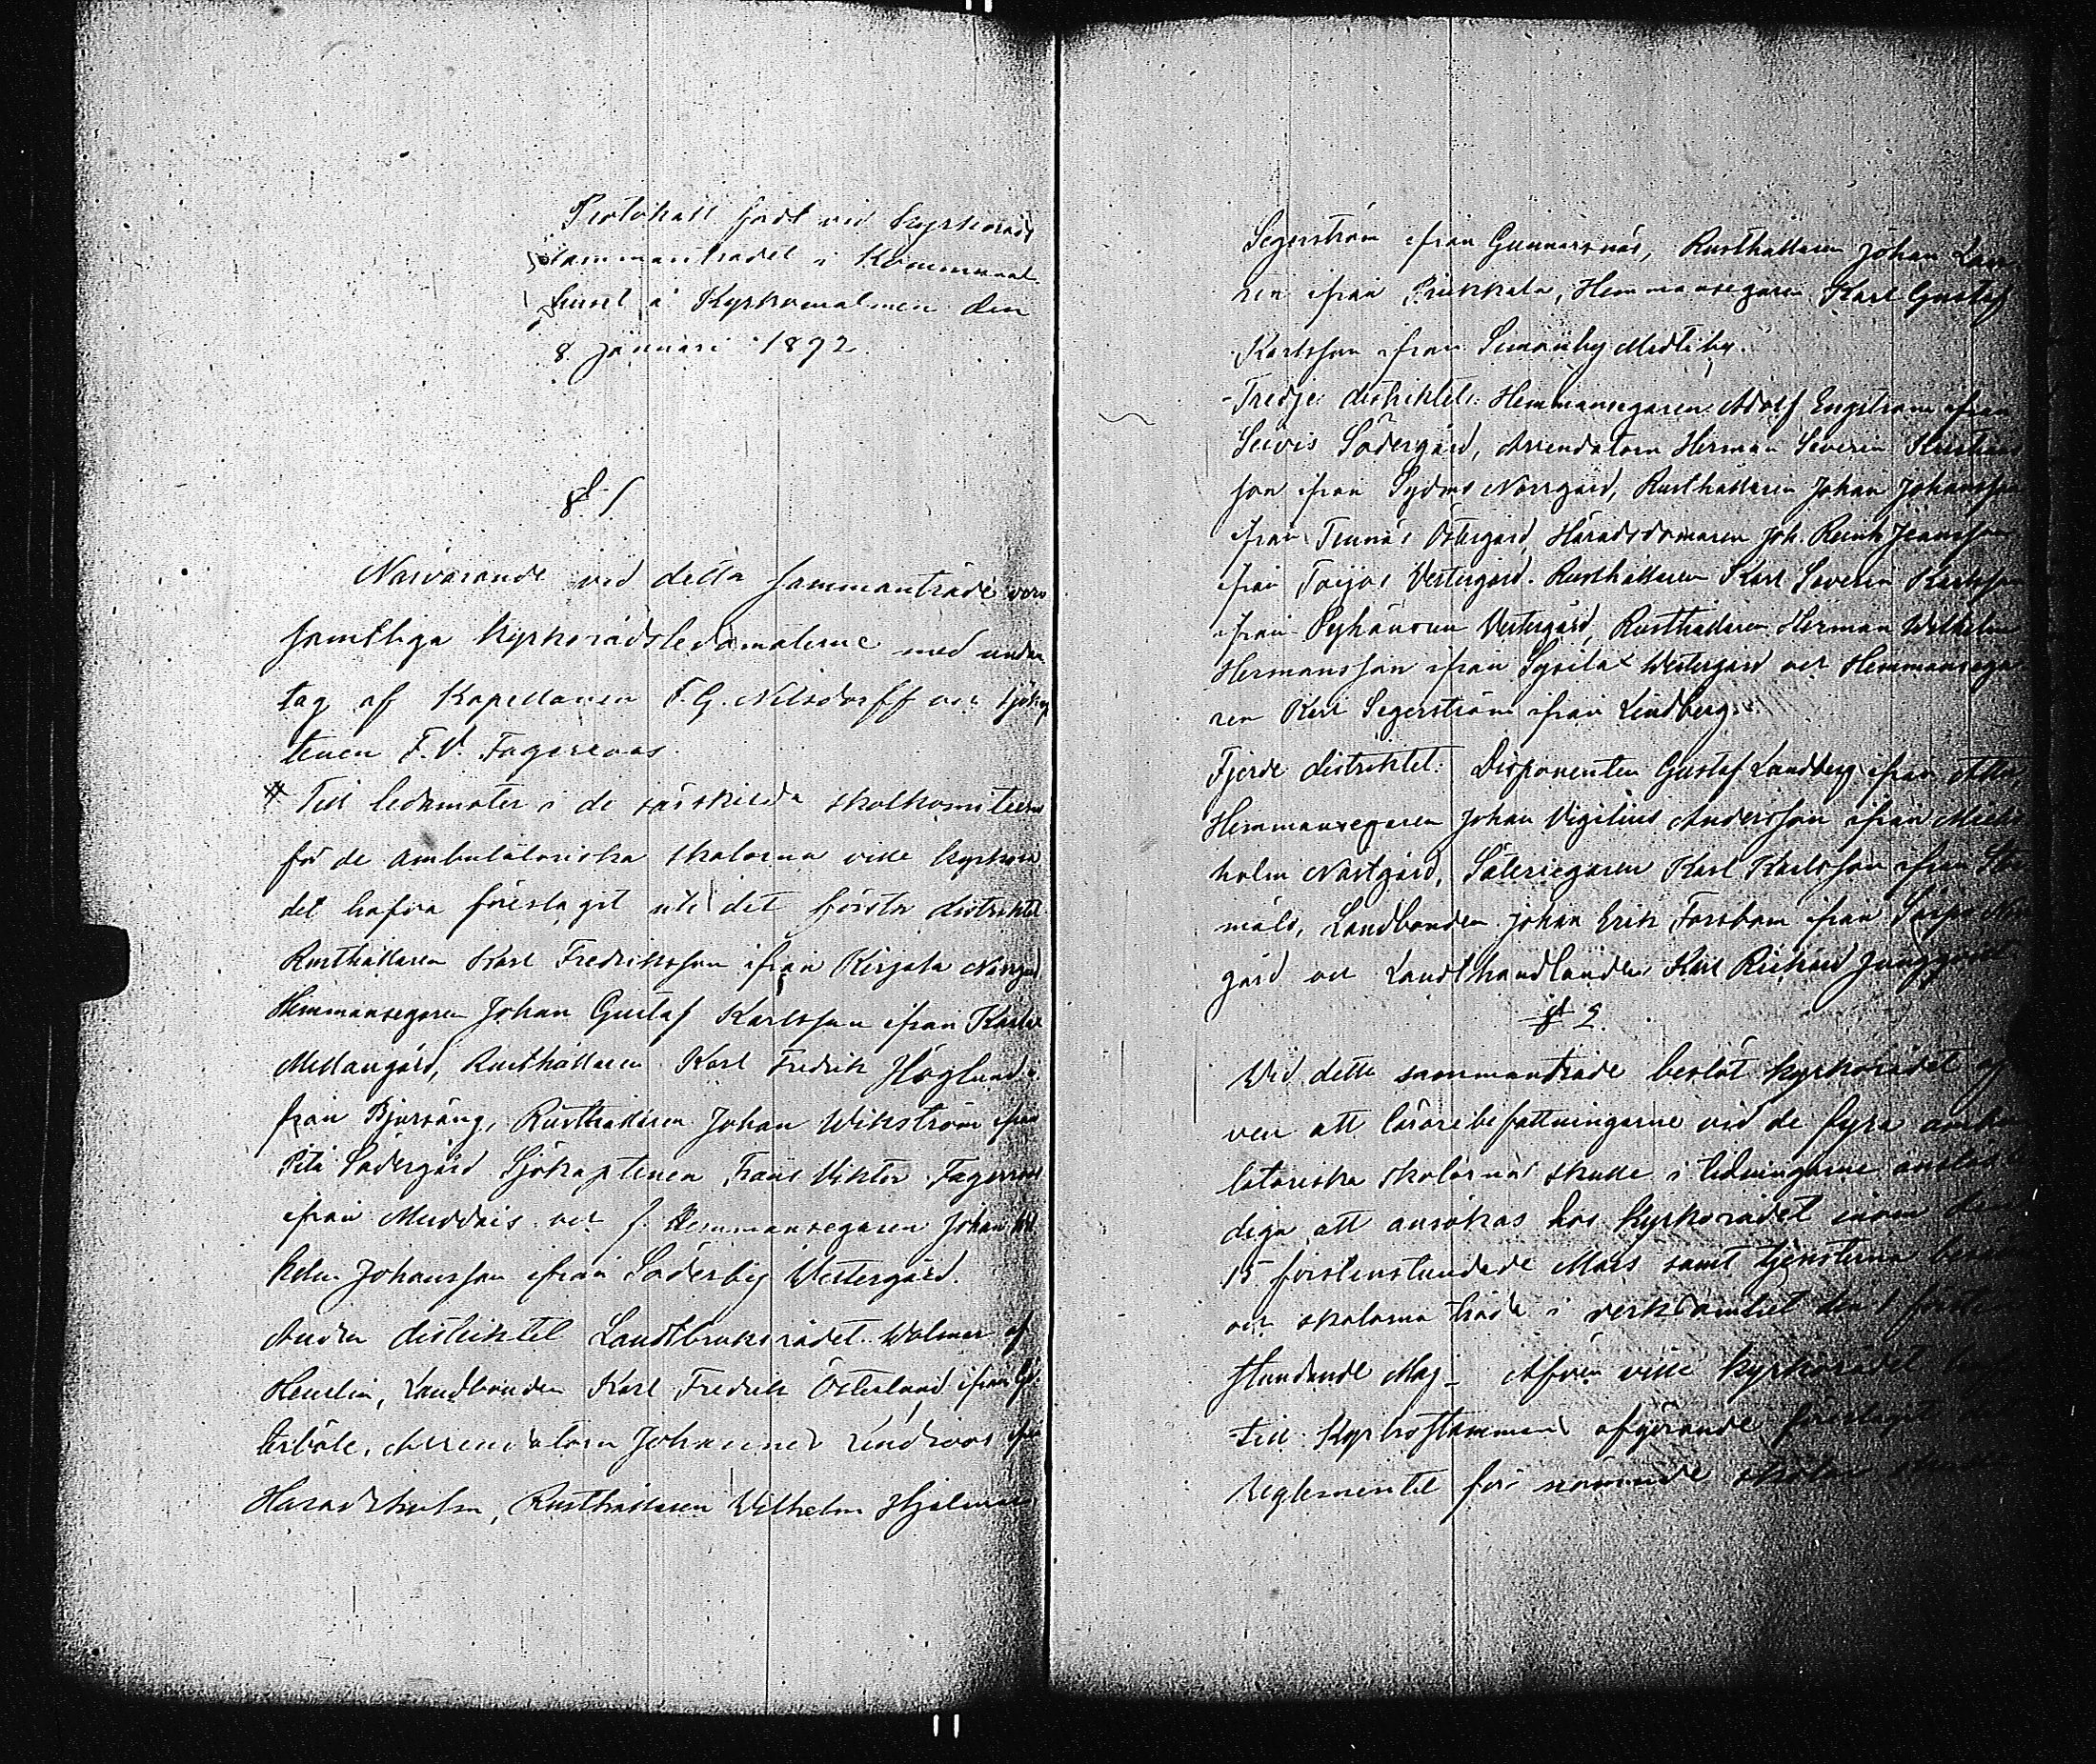 Protokoll fördt vid kyrkoråds
sammanträdet i Kommunal
huset å Kyrkomalmen den
8 Januari 1892
§ 1
Närvarande vid detta sammanträde voro
samtliga kyrkorådsledamöterne med undan
tag af Kapellanen F. G. Nilsdorff och sjökap
tenen F. V. Fageroos.
Till ledamöter i de särskilda skolkomiteerna
för de ambulatoriska skolorna ville kyrkorå
det hafva föreslagit uti det första distriktet
Rusthållaren Karl Fredriksson ifrån Kirjala Norrgård
Hemmansegaren Johan Gustaf Karlsson ifrån
Mellangård, Rusthållaren Karl Fredrik Höglund i
från Bjursäng, Rusthållaren Johan Wikström ifrån
Södergård Sjökaptenen Frans Viktor Fageroos
ifrån Muddais och f. Hemmansegaren Johan Wil
helm Johansson ifrån Söderby Westergård.
Andra distriktet Landtbruksrådet Wolmar af
Heurlin, Landbonden Karl Fredrik Österlund ifrån
terböle, Arrendatorn Johannes Lindroos ifrån
Haradsholm, Rusthållaren Wilhelm Hjalmar
Segerström ifrån Gunnarsnäs, Rusthållaren Johan
ren ifrån Prukkala, Hemmansegaren Karl Gustaf
Karlsson ifrån Simonby
Tredje distriktet: Hemmansegaren Adolf Engström ifrån
Södergård, Arrendatorn Herman Severin Kustiaas
son ifrån Sydmo Norrgård, Rusthållaren Johan Johansson
ifrån Tennäs Östergård, Häradsdomaren Joh. Reinh Jeansson
ifrån Toijos Vestergård. Rusthållaren Karl Severin Karlsson
ifrån Pyhäsuu Vestergård, Rusthållaren Herman Wilhelm
Hermansson ifrån Sysilax Westergård och Hemmansega
ren Karl Segerström ifrån Lindberg.
Fjerde distriktet: Disponenten Gustaf Landberg ifrån Attu,
Hemmansegaren Johan Vigilius Andersson ifrån
holm Norrgård, Säteriegaren Karl Karlsson ifrån
Landbonden Johan Erik Forsbom ifrån
gård och Landthandlanden Karl Rickard Jungqvist.
§ 2.
Vid detta sammanträde beslöt kyrkorådet äf
ven att lärarebefattningarne vid de fyra ambu
latoriska skolorna skulle i tidningarne anslås le
diga att ansökas hos kyrkorådet inom den
15 förstinstundande Mars samt tjensterna besättas
och skolorna träda i verksamhet den 1 förstin
stundande Maj. Äfven ville kyrkorådet
till Kyrkostämmans afgörande föreslagit
Reglementet för nämnde skolor